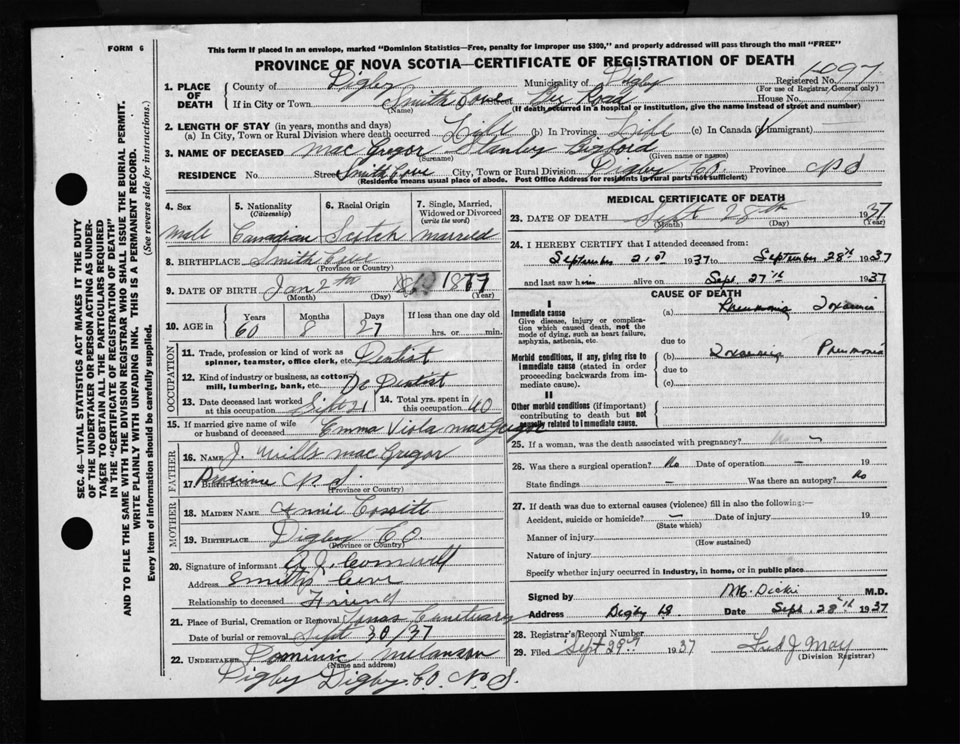 FORM 6
This form if placed in an envelope, marked "Dominion Statistics—Free, penalty for improper use $300," and properly addressed will pass through the mail "FREE"
PROVINCE OF NOVA SCOTIA—CERTIFICATE OF REGISTRATION OF DEATH
1. PLACE OF DEATH County of Digby Municipality of Digby Registered No. 1097
(For use of Registrar General only)
If in City or Town Smith Cove Road House No.
(Name) (If death occurred in a hospital or institution, give the name instead of street and number)
2. LENGTH OF STAY (in years, months and days)
(a) In City, Town or Rural Division where death occurred Life (b) In Province Life (c) In Canada (if immigrant)
3. NAME OF DECEASED Mac Gregor Stanley
(Surname) (Given name or names)
RESIDENCE No. Street Smith Cove City, Town or Rural Division Digby Co. Province N S
(Residence means usual place of abode. Post Office Address for residents in rural parts not valid)
4. Sex
5. Nationality (Citizenship)
6. Racial Origin
7. Single, Married, Widowed or Divorced (write the word)
Male Canadian Scotch Married
8. BIRTHPLACE Smith Cove
(Province or Country)
9. DATE OF BIRTH Jan 2th 1877
(Month) (Day) (Year)
10. AGE in Years Months Days If less than one day old
60 8 27 hrs. or min.
OCCUPATION
11. Trade, profession or kind of work as spinner, teamster, office clerk, etc. Dentist
12. Kind of industry or business, as cotton-mill, lumbering, bank, etc. Do Dentist
13. Date deceased last worked at this occupation Sept 21
14. Total yrs. spent in this occupation 40
15. If married give name of wife or husband of deceased Emma Viola MacGregor
FATHER
16. NAME J. Mills MacGregor
17. BIRTHPLACE N. S.
(Province or Country)
MOTHER
18. MAIDEN NAME Annie Cossitt
19. BIRTHPLACE Digby Co.
(Province or Country)
20. Signature of informant
Address Smiths Cove
Relationship to deceased Friend
21. Place of Burial, Cremation or Removal
Date of burial or removal Sept 30/37
22. UNDERTAKER Dominic Melanson
(Name and address)
Digby Digby Co. N. S.
MEDICAL CERTIFICATE OF DEATH
23. DATE OF DEATH Sept 28th 1937
(Month) (Day) (Year)
24. I HEREBY CERTIFY that I attended deceased from:
September 21st 1937 to September 28th 1937
and last saw him alive on Sept. 27th 1937
CAUSE OF DEATH
I
Immediate cause
Give disease, injury or complication which caused death, not the mode of dying, such as heart failure, asphyxia, asthenia, etc.
(a) Toxaemia
due to
Morbid conditions, if any, giving rise to immediate cause (stated in order proceeding backwards from immediate cause).
(b) Pneumonia
due to
(c)
II
Other morbid conditions (if important) contributing to death but not causally related to immediate cause.
25. If a woman, was the death associated with pregnancy? No —
26. Was there a surgical operation? No Date of operation — 19
State findings — Was there an autopsy? No
27. If death was due to external causes (violence) fill in also the following:—
Accident, suicide or homicide? — Date of injury 19
(State which)
Manner of injury
(How sustained)
Nature of injury
Specify whether injury occurred in Industry, in home, or in public place
Signed by Dickie M.D.
Address Digby Date Sept. 28th 1937
28. Registrar's Record Number
29. Filed Sept 29th 1937 Fred J May
(Division Registrar)
SEC. 46—VITAL STATISTICS ACT MAKES IT THE DUTY
OF THE UNDERTAKER OR PERSON ACTING AS UNDER-
TAKER TO OBTAIN ALL THE PARTICULARS REQUIRED
IN THE "CERTIFICATE OF REGISTRATION OF DEATH"
AND TO FILE THE SAME WITH THE DIVISION REGISTRAR WHO SHALL ISSUE THE BURIAL PERMIT.
WRITE PLAINLY WITH UNFADING INK. THIS IS A PERMANENT RECORD.
Every item of information should be carefully supplied. (See reverse side for instructions.)